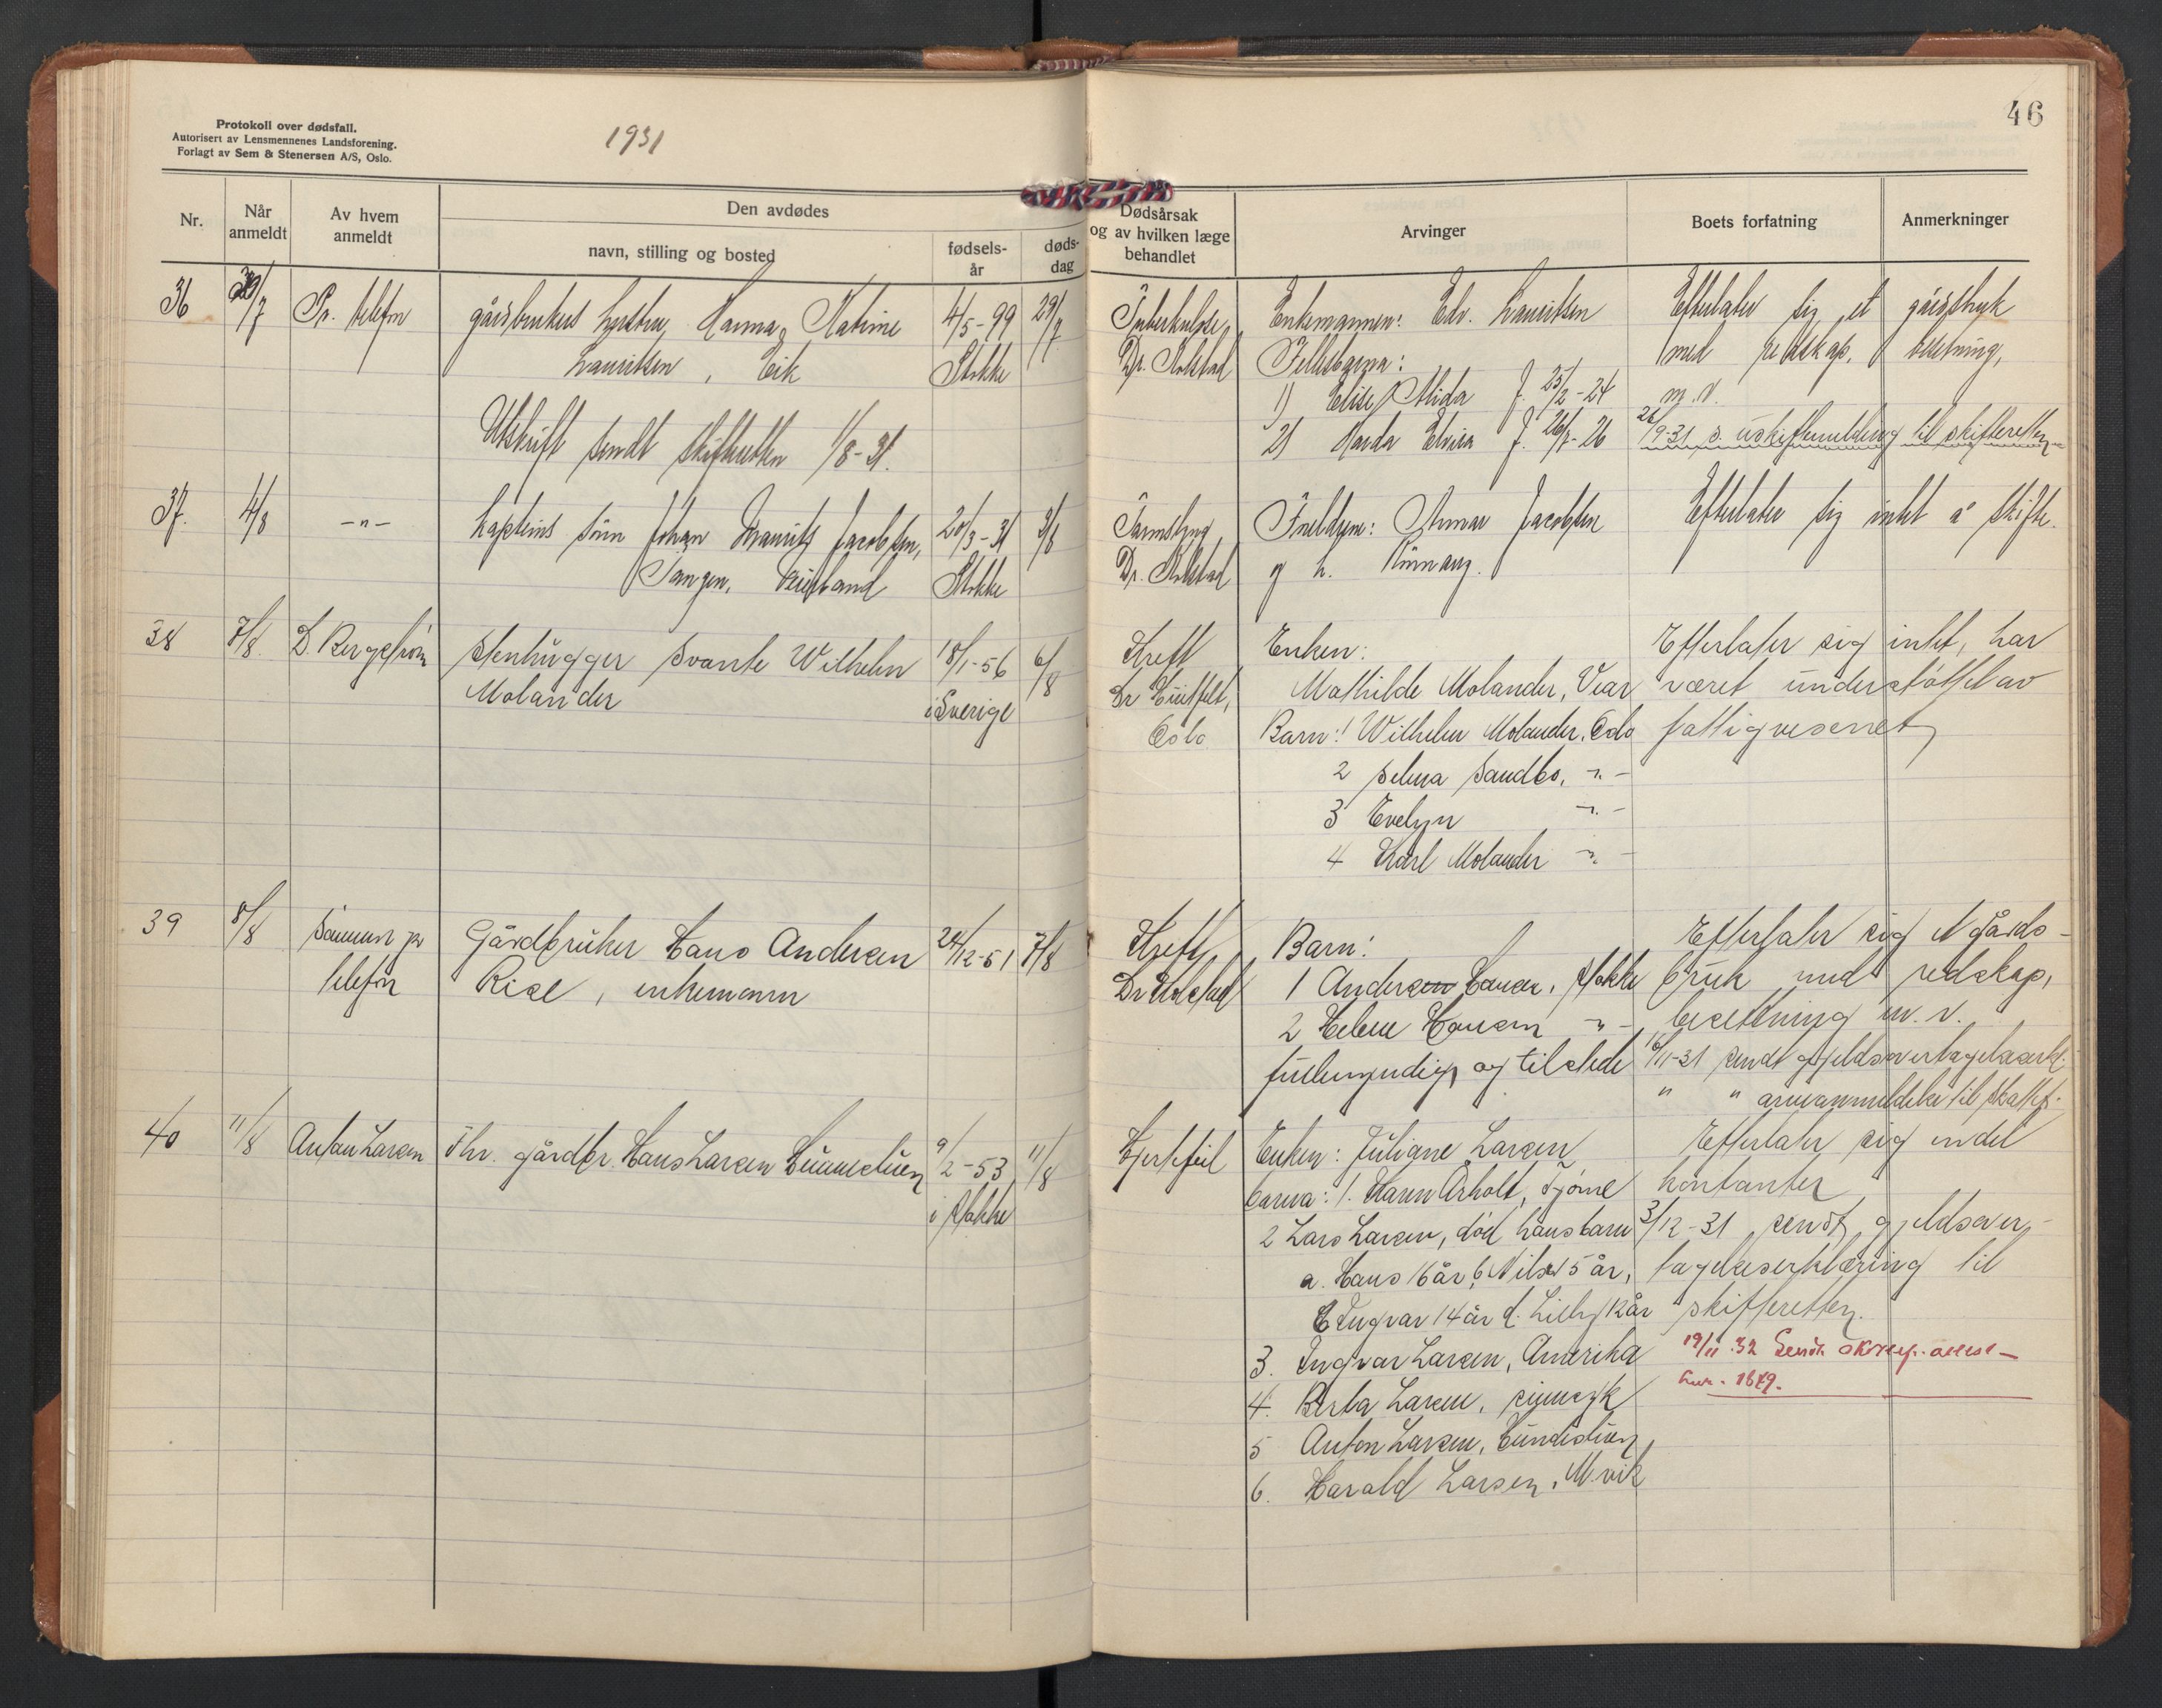 Protokoll over dødsfall.
Autorisert av Lensmennenes Landsforening.
Forlagt av Sem & Stenersen A/S, Oslo.
1931
46
Nr.
Når anmeldt
Av hvem anmeldt
Den avdødes
navn, stilling og bosted
fødsels-år
døds-dag
Dødsårsak og av hvilken læge behandlet
Arvinger
Boets forfatning
Anmerkninger
36 /7 Pr. telefon gårdbrukers hustru, Hanna Katrine 4/5-99 29/7
Lauritsen, Eik Stokke
Utskrift sendt skifteretten 1/8-31.
Tuberkulose, Enkemannen: Edv. Lauritsen Efterlater sig et gårdsbruk
Dr. Kolstad Fellesbarn: med redskap, besetning,
1) Elise Alida f. 25/2-24 m.v.
2) Elvira f. 26 26/9-31 s. uskiftemelding til skifteretten
37. 4/8 -"- kapteins sønn Johan Mauritz Jacobsen, 20/3-31 3/8
Tangen, Stokke
Tarmslyng, Foreldrene: Jacobsen Efterlater sig intet å skifte.
Dr. Kolstad og h.
38 7/8. D. Bergstrøm Stenhugger Svante Wilhelm 18/1-56 6/8
Molander i Sverige
Kreft Enken: Efterlater sig intet, har
Dr Mathilde Molander, Vear været understøttet av
Oslo Barn: 1 Wilhelm Molander, Oslo fattigvesenet
2 Selma Sandbo, -"-
3 Evelyn -"-
4 Karl Molander -"-
39 8/8 Sønnen pr Gårdbruker Hans Andersen 24/12-51 7/8
telefon Rise, enkemann
Kreft, Barn: Efterlater sig et gårds-
Dr Kolstad 1 Anders Hansen, Stokke bruk med redskap,
2 Helene Hansen -"- besetning m.v.
fullmyndig og tilstede /11-31 sendt gjeldsovertagelseserkl.
" " arveanmeldelse til skattef.
40 11/8 Anton Larsen Fhv. gårdbr. Hans Larsen 9/2-53 11/8
i Stokke
Hjertefeil Enken: Juliane Larsen Efterlater sig endel
barna: 1. Karen Årholt, Tjøme kontanter
2 Lars Larsen, død hans barn 3/12-31 sendt gjeldsover-
a. Hans 16 år, b Nils 15 år, tagelseserklæring til
c Ingvar 14 år d. Lilly 12 år skifteretten.
3. Ingvar Larsen, Amerika 19/11.32 Sendt
4. Berta Larsen, sinnsyk 1879.
5 Anton Larsen,
6. Harald Larsen, M.vik